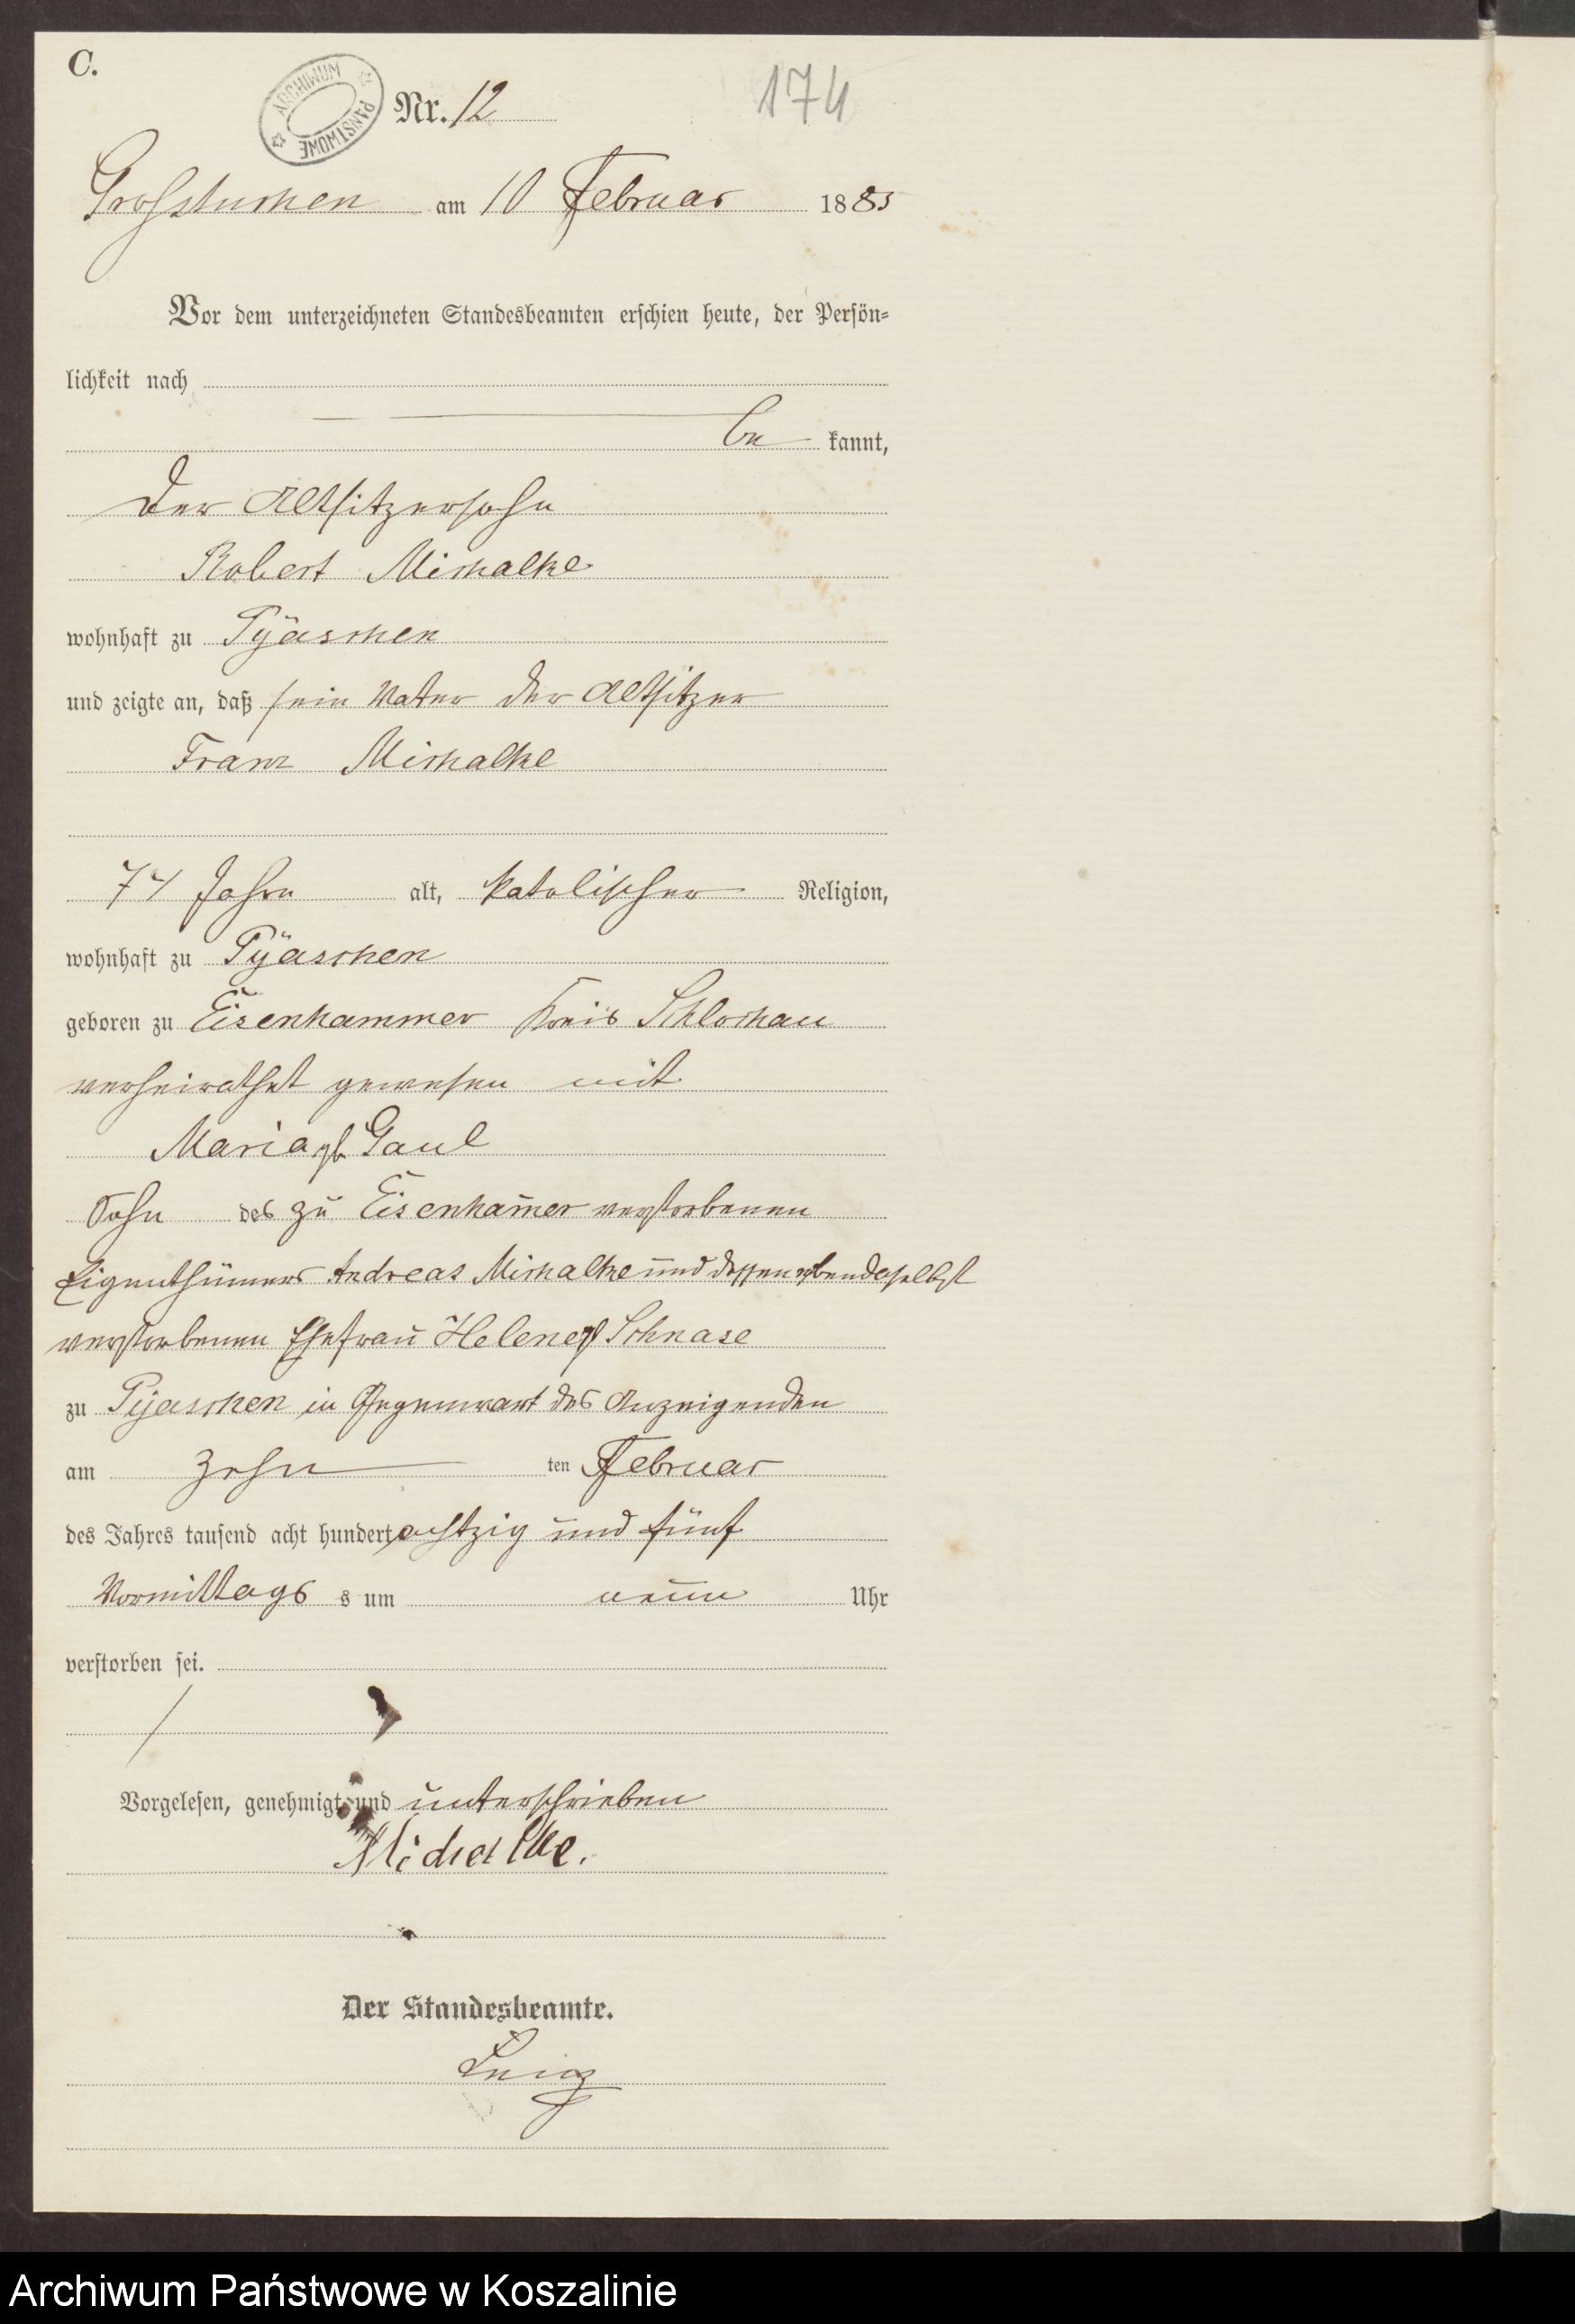 C.
ARCHIWUM PAŃSTWOWE
Nr. 12
174
Grosstuchen am 10 Februar 1885
Vor dem unterzeichneten Standesbeamten erschien heute, der Persön-
lichkeit nach
be kannt,
der Altsitzersohn
Robert Michalke
wohnhaft zu Pyaschen
und zeigte an, daß sein Vater der Altsitzer
Franz Michalke
74 Jahre alt, katolischer Religion,
wohnhaft zu Pyaschen
geboren zu Eisenhammer Kreis Schlochau
verheirathet gewesen mit
Maria gb Gaul
Sohn des zu Eisenham̄er verstorbenen
Eigenthümers Andreas Michalke und dessen ebendaselbst
verstorbenen Ehefrau Helene Schnase
zu Pyaschen in Gegenwart des Anzeigenden
am zehn ten Februar
des Jahres tausend acht hundert achtzig und fünf
Vormittags s um neun Uhr
verstorben sei.
Vorgelesen, genehmigt und unterschrieben
Michalke.
Der Standesbeamte.
Archiwum Państwowe w Koszalinie